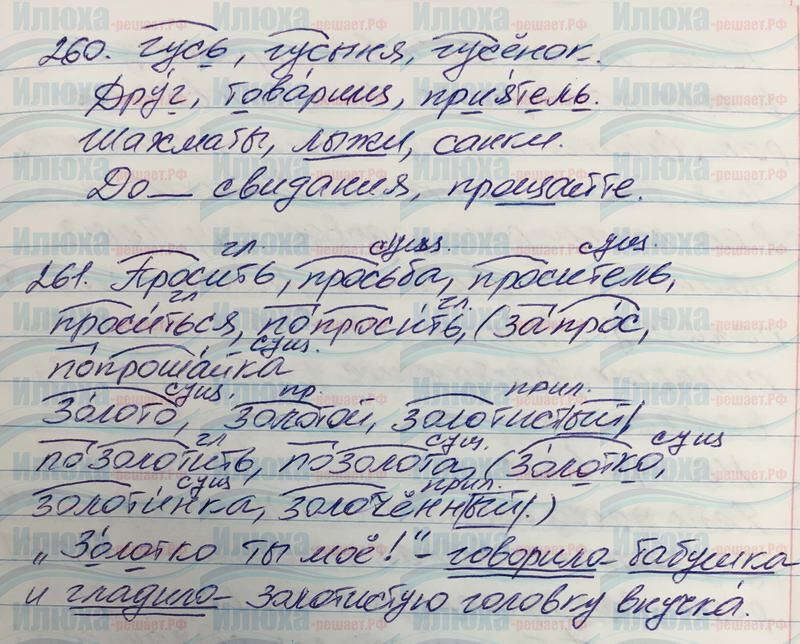 Илюха -решает.РФ
260. Гусь, гусыня, гусёнок.
Друг, товарищ, приятель.
Шахматы, лыжи, санки.
До_свидания, прощайте.
гл. сущ. сущ.
261. Просить, просьба, проситель,
гл. гл.
проситься, попросить, (запрос,
сущ.
попрошайка
сущ. пр. прил.
Золото, золотой, золотистый,
гл. сущ. сущ
позолотить, позолота, (золотко,
сущ прил.
золотинка, золочённый.)
„Золотко ты моё!“ - говорила бабушка
и гладила золотистую головку внучка.